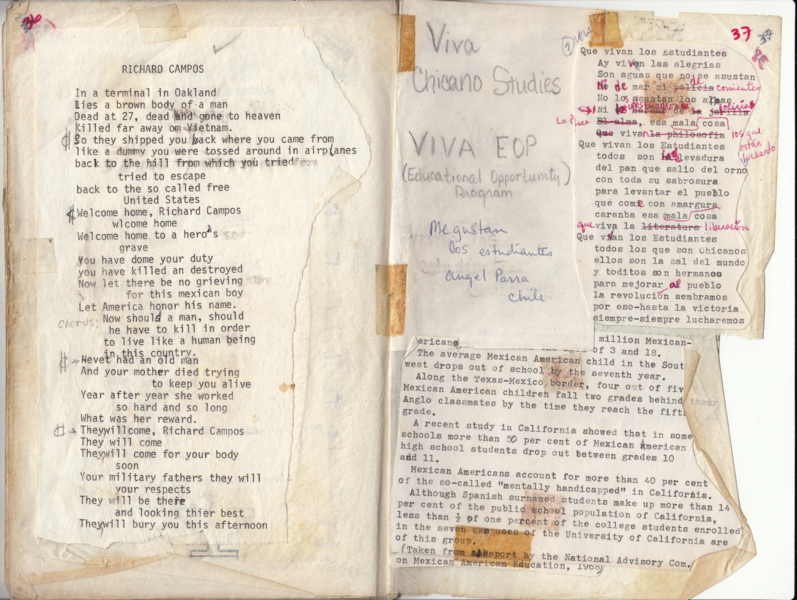 36
RICHARD CAMPOS
In a terminal in Oakland
Lies a brown body of a man
Dead at 27, dead and gone to heaven
Killed far away on Vietnam.
So they shipped you back where you came from
like a dummy you were tossed around in airplanes
back to the hill from which you tried
tried to escape
back to the so called free
United States
Welcome home, Richard Campos
wlcome home
Welcome home to a hero's
grave
You have dome your duty
you have killed an destroyed
Now let there be no grieving
for this mexican boy
Let America honor his name.
CHORUS:
Now should a man, should
he have to kill in order
to live like a human being
in this country.
Nevet had an old man
And your mother died trying
to keep you alive
Year after year she worked
so hard and so long
What was her reward.
Theywillcome, Richard Campos
They will come
Theywill come for your body
soon
Your military fathers they will
your respects
They will be there
and looking thier best
Theywill bury you this afternoon
Viva
Chicano Studies
VIVA EOP
(Educational Opportunity)
Program
Me gustan
los estudiantes
Angel Parra
Chile
37
37
Que vivan los Estudiantes
Ay vivan las alegrias
Son aguas que no se asustan
Ni de mar ni policia de corrientes
No los asustan las
Ni la de la jauria
La Peace El alma, esa mala cosa
Que vivan la philosofia los que están luchando
Que vivan los Estudiantes
todos son levadura
del pan que salio del orno
con toda su sabrosura
para levantar el pueblo
que come con amargura
caranba esa mala cosa
que viva la literatura liberación
Que vivan los Estudiantes
todos los que son Chicanos
ellos son la sal del mundo
y toditos son hermanos
para mejorar al pueblo
la revolución sembramos
por eso-hasta la victoria
siempre-siempre lucharemos
million Mexican-
ericans ages of 3 and 18.
The average Mexican American child in the South
west drops out of school by the seventh year.
Along the Texas-Mexico border, four out of five
Mexican American children fall two grades behind their
Anglo classmates by the time they reach the fifth
grade.
A recent study in California showed that in some
schools more than 50 per cent of Mexican American
high school students drop out between grades 10
and 11.
Mexican Americans account for more than 40 per cent
of the so-called "mentally handicapped" in California.
Although Spanish surnamed students make up more than 14
per cent of the public school population of California,
less than ½ of one percent of the college students enrolled
in the seven campuses of the University of California are
of this group.
(Taken from a Report by the National Advisory Com.
on Mexican American Education, 1968)